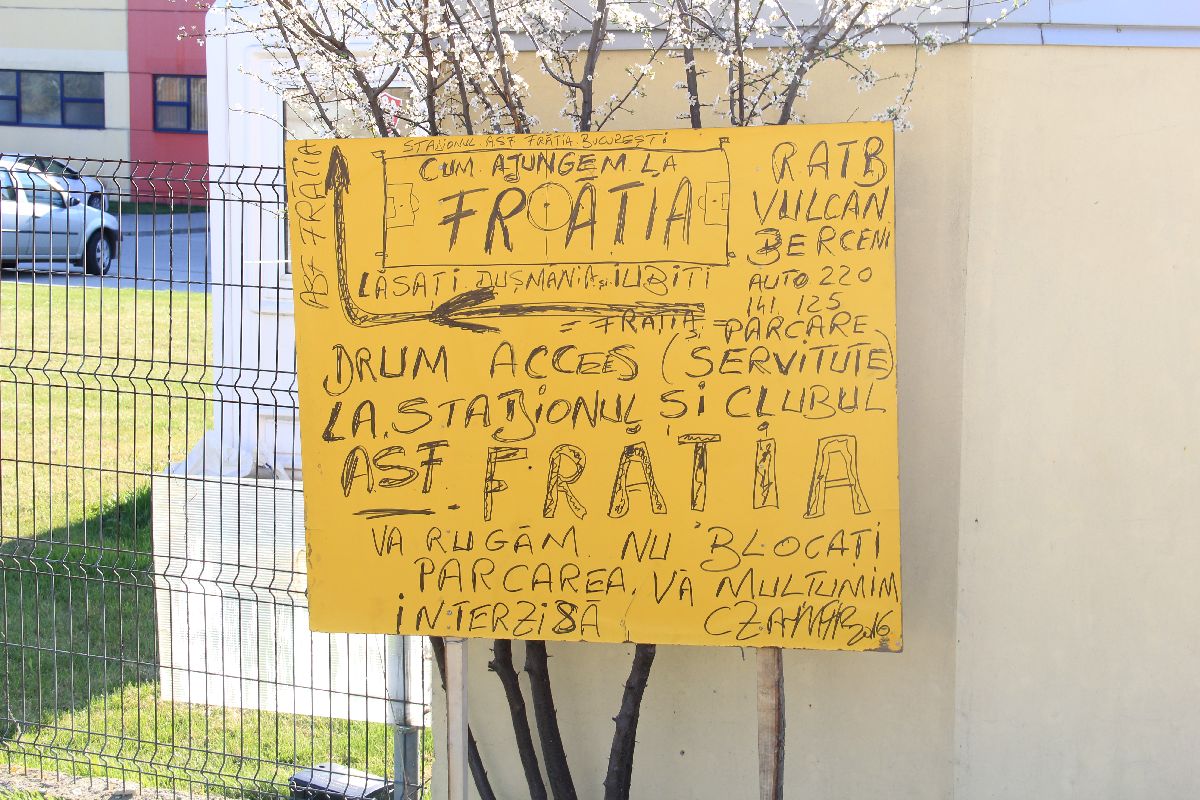 STADIONUL ASF FRĂTIA BUCUREȘTI
CUM AJUNGEM LA
FRĂTIA
LĂSAȚI DUȘMANIA și IUBIȚI
= FRĂȚIA =
ASF FRĂTIA
RATB
VULCAN
BERCENI
AUTO 220
141 125
PARCARE
DRUM ACCES (SERVITUTE)
LA STADIONUL ȘI CLUBUL
ASF FRĂTIA
VA RUGĂM NU BLOCAȚI
PARCAREA VĂ MULTUMIM
INTERZISĂ
2016